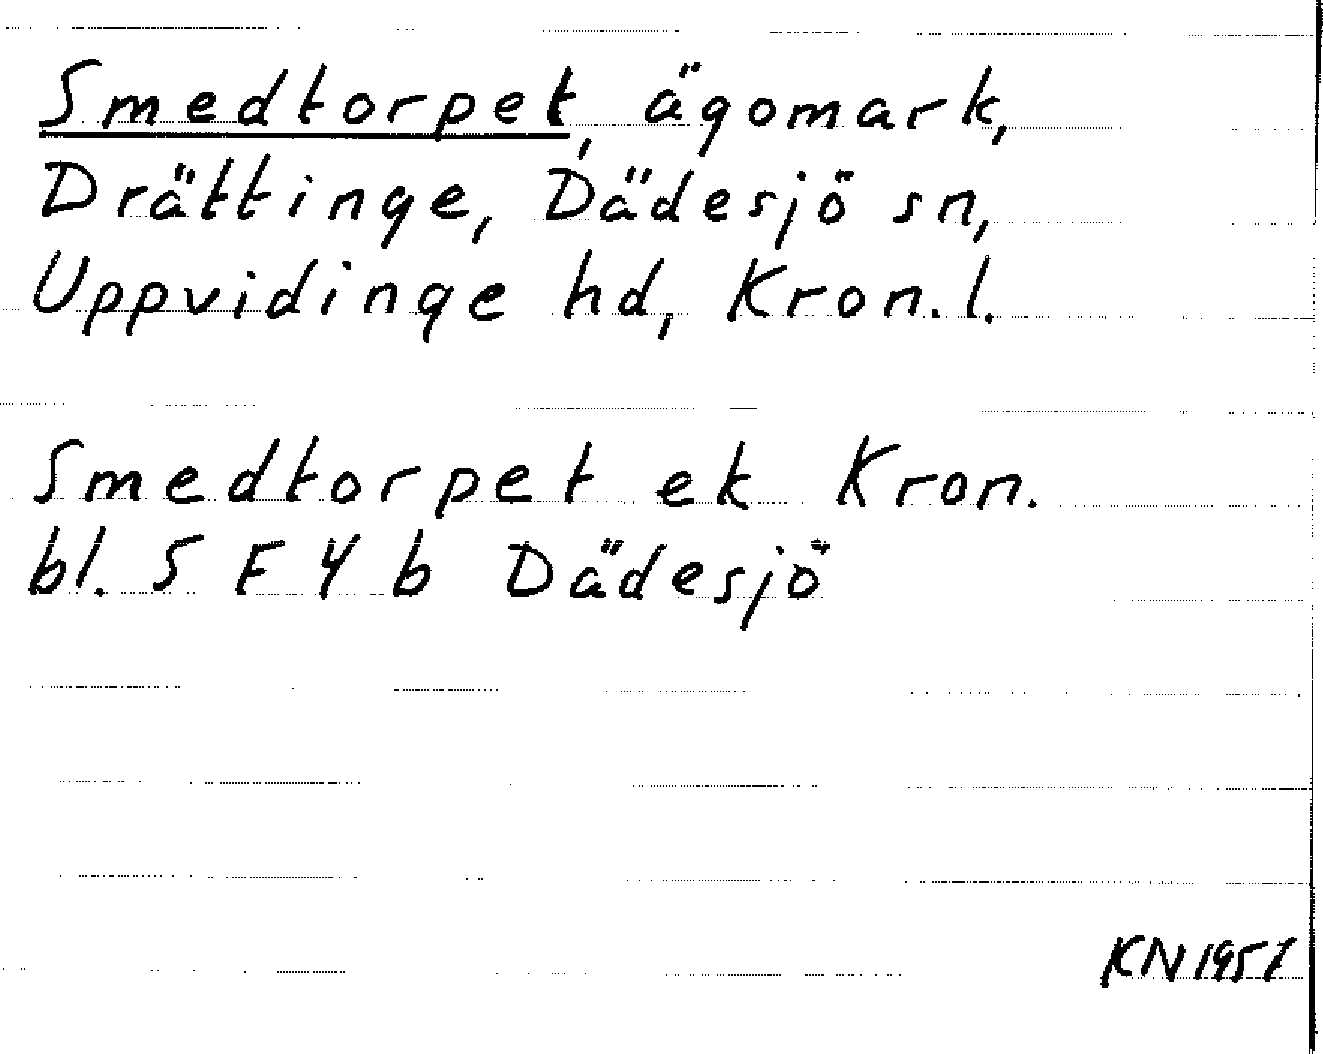 Smedtorpet, ägomark,
Drättinge, Dädesjö sn,
Uppvidinge hd, Kron. l.
Smedtorpet ek Kron.
bl. 5 F 4 b Dädesjö
KN 1951